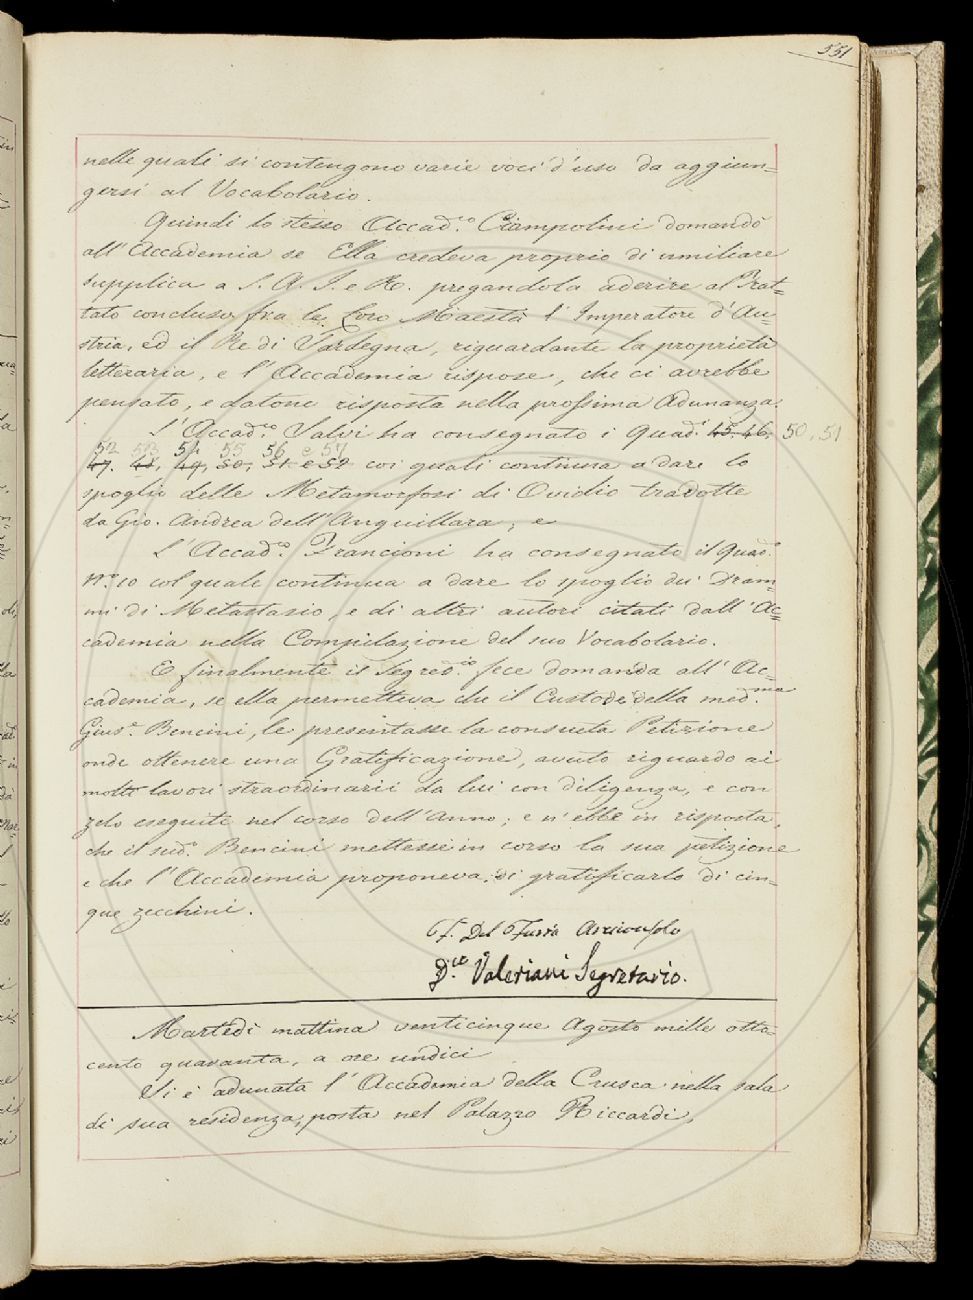 551
nelle quali si contengono varie voci d'uso da aggiun=
gersi al Vocabolario.
Quindi lo stesso Accad.co Ciampolini domandò
all'Accademia se Ella credeva proprio di umiliare
supplica a S. A. I. e R. pregandola aderire al Trat=
tato concluso fra le Loro Maestà l'Imperatore d'Au=
stria, ed il Re di Sardegna, riguardante la proprietà
letteraria, e l'Accademia rispose, che ci avrebbe
pensato, e datone risposta nella prossima Adunanza.
L'Accad.co Salvi ha consegnato i Quad.i 45. 46. 50, 51
52 53 54 55 56 e 57
47. 48. 49, 50, 51. e 52 coi quali continua a dare lo
spoglio delle Metamorfosi di Ovidio tradotte
da Gio. Andrea dell'Anguillara; e
L'Accad.co Francioni ha consegnato il Quad.
N.o 10 col quale continua a dare lo spoglio dei Dram=
mi di Metastasio, e di altri autori citati dall'Ac=
cademia nella Compilazione del suo Vocabolario.
E finalmente il Segred.co fece domanda all'Ac=
cademia, se ella permetteva che il Custode della med.ma
Gius.e Bencini, le presentasse la consueta Petizione
onde ottenere una Gratificazione, avuto riguardo ai
molti lavori straordinarii da lui con diligenza, e con
zelo eseguiti nel corso dell'anno; e n'ebbe in risposta,
che il sud.o Bencini mettesse in corso la sua petizione
e che l'Accademia proponeva di gratificarlo di cin=
que zecchini.
F. Del Furia Arciconsolo
D.re Valeriani Segretario.
Martedì mattina venticinque Agosto mille otto=
cento quaranta, a ore undici
Si è adunata l'Accademia della Crusca nella sala
di sua residenza, posta nel Palazzo Riccardi,